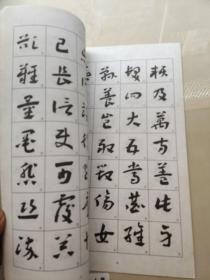 賴及萬方蓋此身
髮四大五常恭惟
鞠養豈敢毀傷女
己長信使可覆器
欲難量墨悲絲染